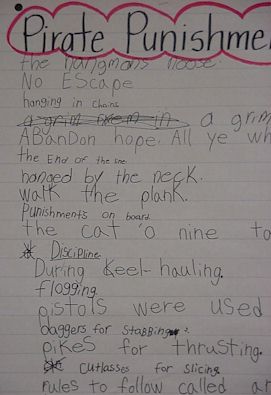 Pirate Punishme
the hangmans noose.
No EScape
hanging in chains
a grim
ABanDon hope. All ye wh
the End of the line
hanged by the neck.
walk the plank.
Punishments on board
the cat 'o nine ta
Discipline
During keel-hauling.
flogging.
pistols were used
daggers for stabbing
pikes for thrusting.
cutlasses for slicing
rules to follow called ar